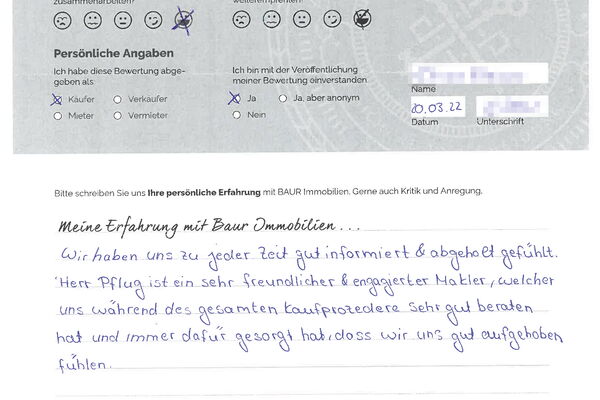 zusammenarbeiten?
weiterempfehlen?
Persönliche Angaben
Ich habe diese Bewertung abge-
geben als:
Käufer
Verkäufer
Mieter
Vermieter
Ich bin mit der Veröffentlichung
meiner Bewertung einverstanden.
Ja
Ja, aber anonym
Nein
Name
20.03.22
Datum
Unterschrift
Bitte schreiben Sie uns Ihre persönliche Erfahrung mit BAUR Immobilien. Gerne auch Kritik und Anregung.
Meine Erfahrung mit Baur Immobilien...
Wir haben uns zu jeder Zeit gut informiert & abgeholt gefühlt.
Herr Pflug ist ein sehr freundlicher & engagierter Makler, welcher
uns während des gesamten Kaufprozedere sehr gut beraten
hat und immer dafür gesorgt hat, dass wir uns gut aufgehoben
fühlen.